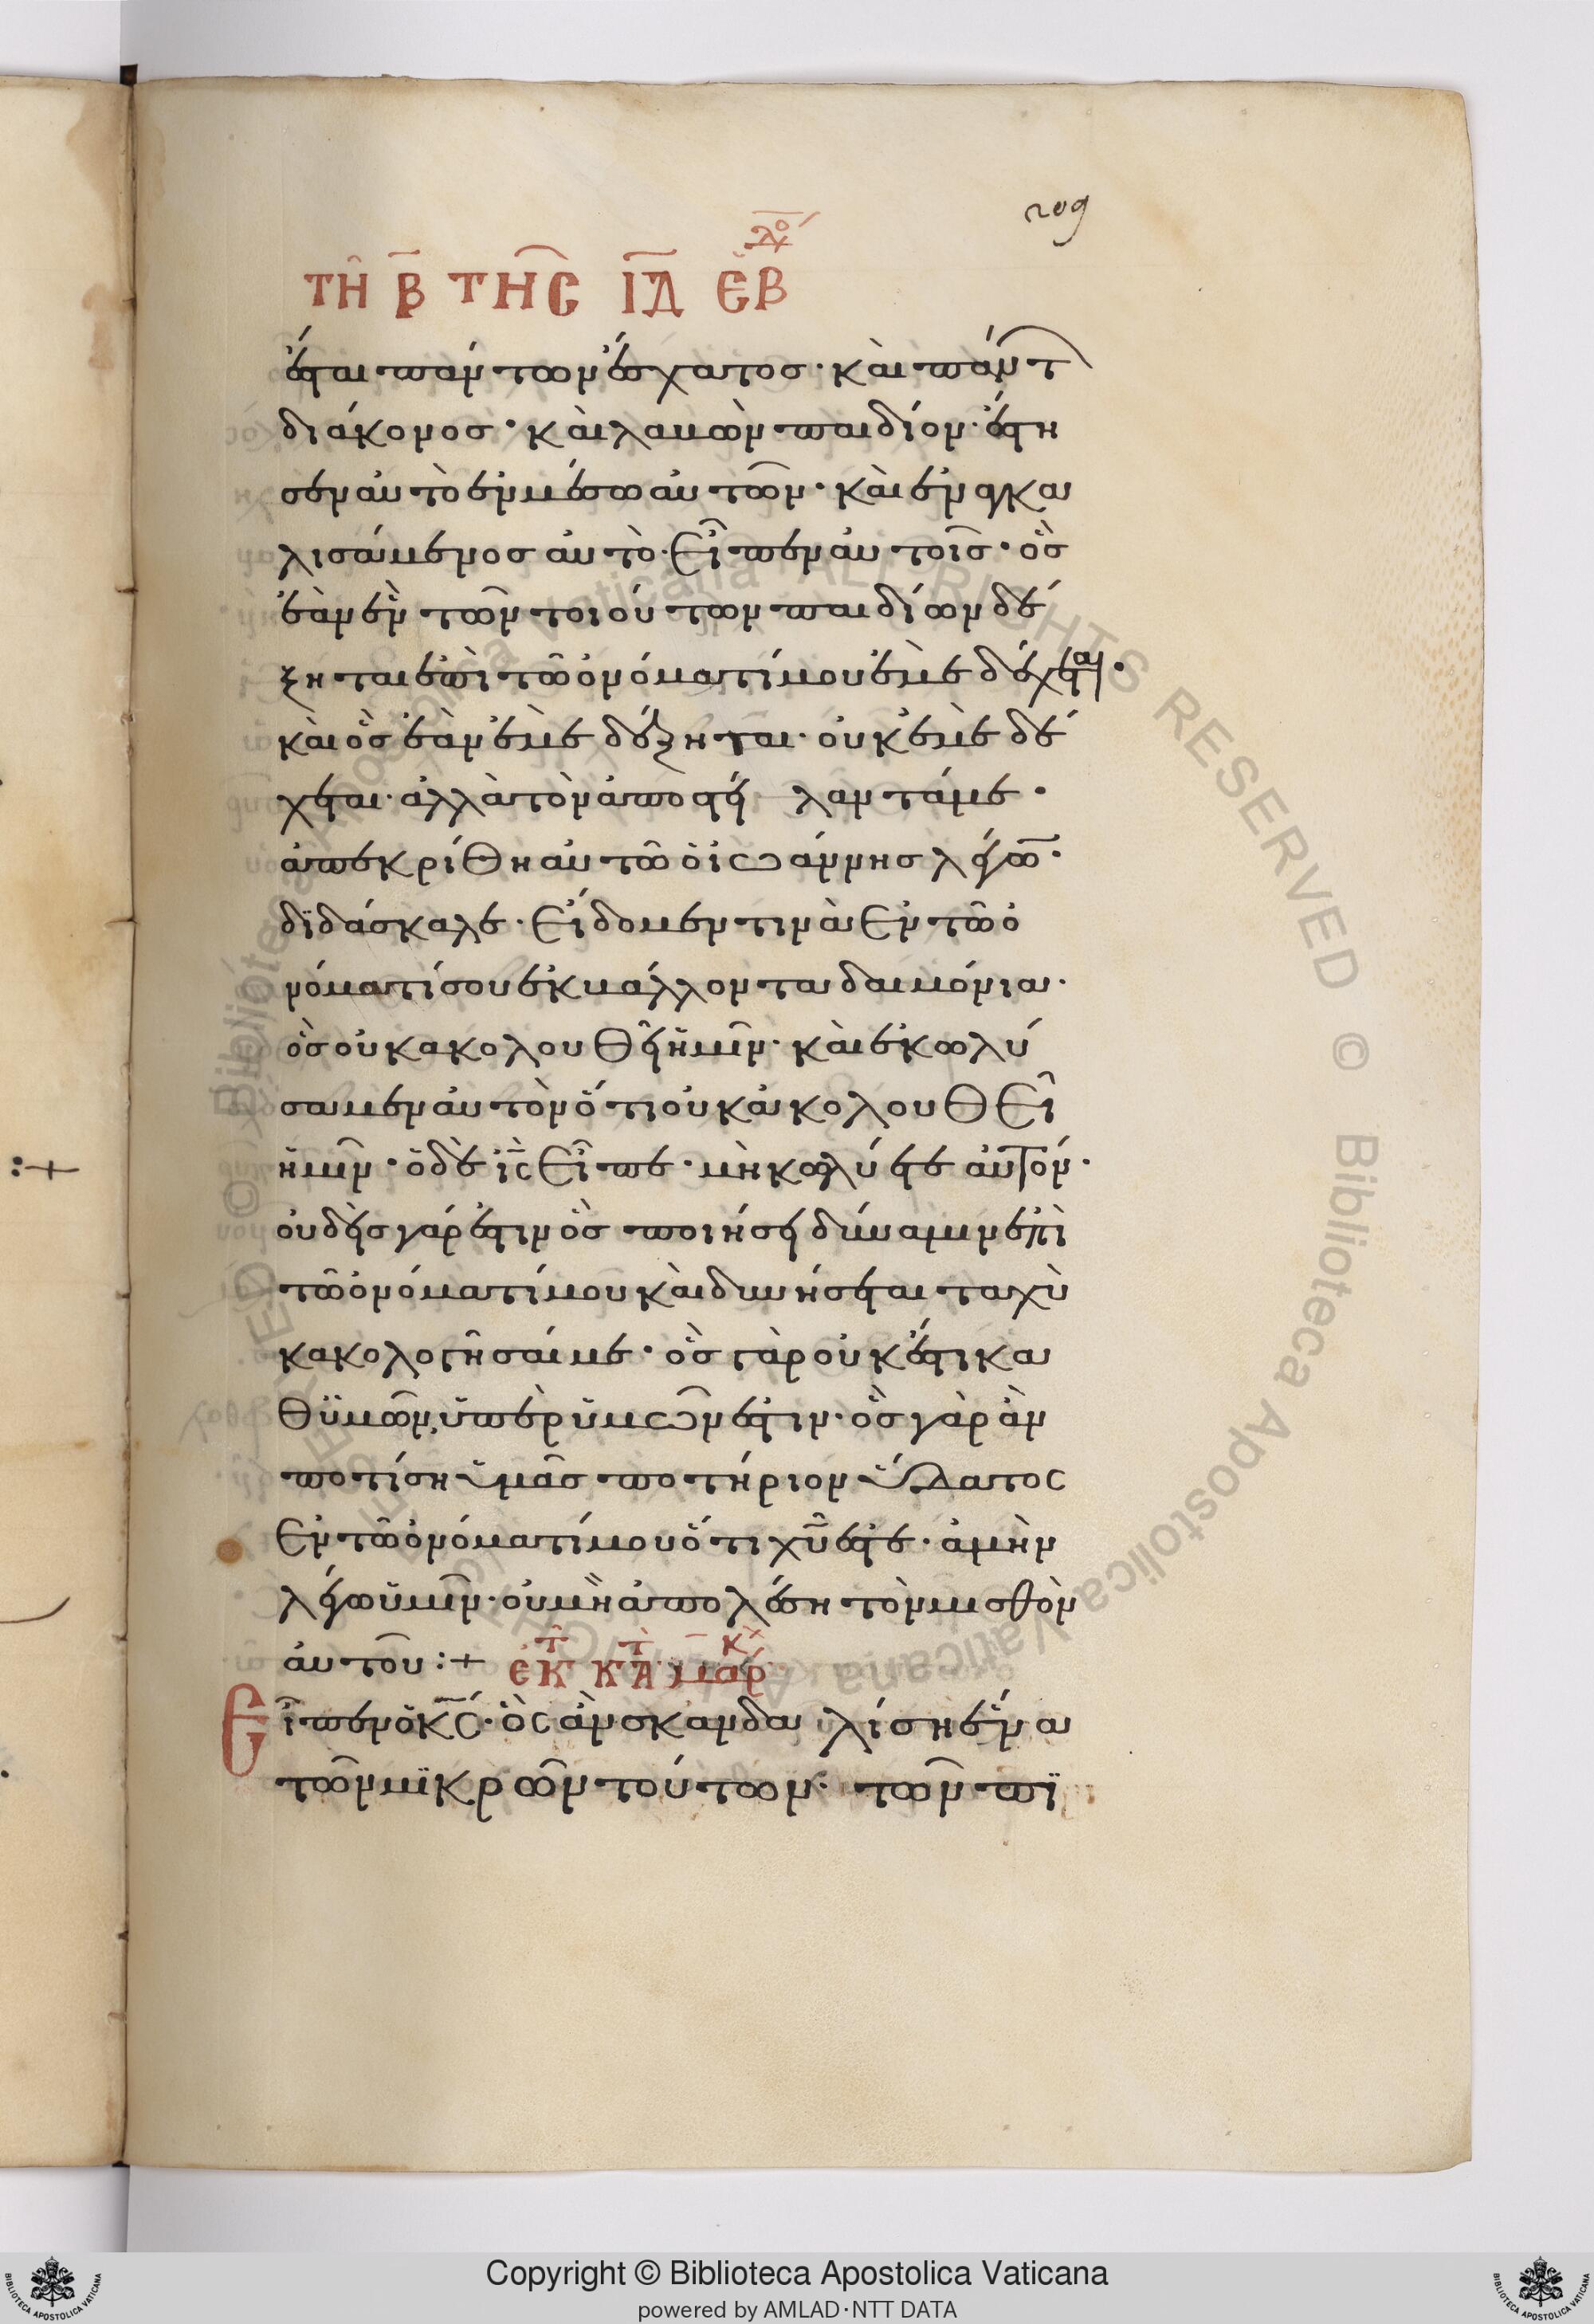 209
τῆ β̅ τῆς ι̅δ̅ ἑβδο
ἔσται πάντων ἔσχατος· καὶ πάντ
διάκονος· καὶ λαβὼν παιδίον· ἔστη
σεν αὐτὸ ἐν μέσω αὐτῶν· καὶ ἐναγκα
λισάμενος αὐτὸ· εἶπεν αὐτοῖς· ὃς
ἐὰν ἓν τῶν τοιούτων παιδίων δέ
ξηται ἐπὶ τῶ ὀνόματί μου ἐμὲ δέχεται·
καὶ ὃς ἐὰν ἐμὲ δέξηται· οὐκ ἐμὲ δέ
χεται· ἀλλὰ τὸν ἀποστείλαντά με·
ἀπεκρίθη αὐτῶ ὁ ἰωάννης λέγων·
διδάσκαλε· εἴδομεν τινὰ ἐν τῶ ὀ
νόματί σου ἐκβάλλοντα δαιμόνια·
ὃς οὐκ ἀκολουθεῖ ἡμῖν· καὶ ἐκωλύ
σαμεν αὐτὸν ὅτι οὐκ ἀκολουθεῖ
ἡμῖν· ὁ δὲ ι̅ς̅ εἶπε· μὴ κωλύετε αὐτόν·
οὐδεὶς γάρ ἐστιν ὃς ποιήσει δύναμιν ἐπὶ
τῶ ὀνόματί μου καὶ δυνήσεται ταχὺ
κακολογῆσαί με· ὃς γὰρ οὐκ ἔστι κα
θ ὑμῶν, ὑπὲρ ὑμῶν ἐστιν· ὃς γὰρ ἂν
ποτίση ὑμᾶς ποτήριον ὕδατος
ἐν τῶ ὀνόματί μου ὅτι χ̅υ̅ ἐστὲ· ἀμὴν
λέγω ὑμῖν· οὐ μὴ ἀπολέση τὸν μισθὸν
αὐτοῦ :+ ἐκ τ κατ μαρ κ
Εἶπεν ὁ κ̅ς̅· ὃς ἂν σκανδαλίση ἕνα
τῶν μικρῶν τούτων· τῶν πι
:+
Copyright © Biblioteca Apostolica Vaticana
powered by AMLAD·NTT DATA